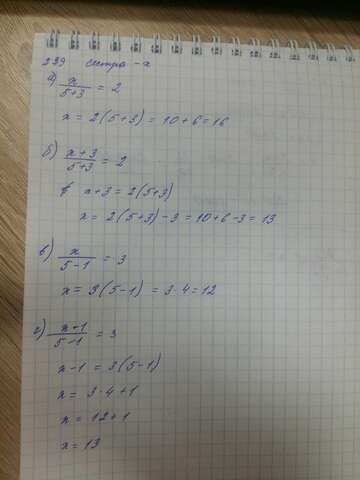 239 сестра - x
а) x / 5+3 = 2
x = 2(5+3) = 10+6=16
б) x+3 / 5+3 = 2
x+3 = 2(5+3)
x = 2(5+3)-3 = 10+6-3 = 13
в) x / 5-1 = 3
x = 3(5-1) = 3·4=12
г) x-1 / 5-1 = 3
x-1 = 3(5-1)
x = 3·4+1
x = 12+1
x = 13